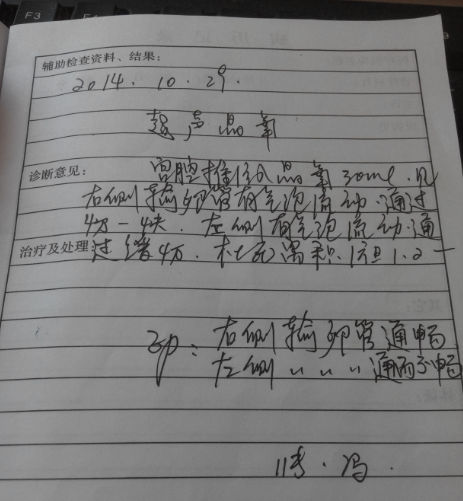 F3
辅助检查资料、结果:
2014. 10. 29.
超声晶氧
诊断意见: 宫腔推注入晶氧30ml. 见
右侧输卵管有气泡流动.通过
4万-4块. 左侧有气泡流动.通
治疗及处理: 过缓4万.
Imp: 右侧输卵管通畅
左侧 〃 〃 〃 通而不畅
冯